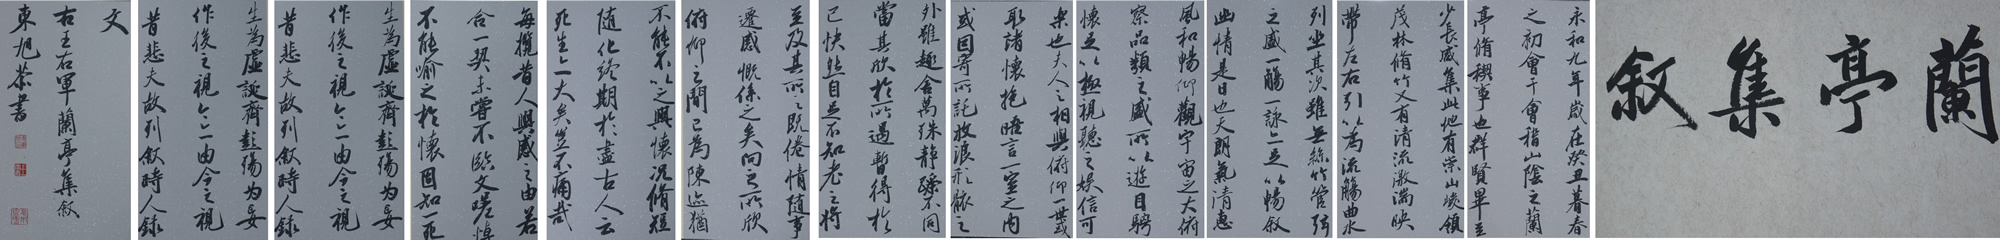 蘭亭集敘
永和九年歲在癸丑暮春
之初會于會稽山陰之蘭
亭脩稧事也群賢畢至
少長咸集此地有崇山峻領
茂林脩竹又有清流激湍映
帶左右引以為流觴曲水
列坐其次雖無絲竹管弦
之盛一觴一詠亦足以暢敘
幽情是日也天朗氣清惠
風和暢仰觀宇宙之大俯
察品類之盛所以遊目騁
懷足以極視聽之娛信可
樂也夫人之相與俯仰一世或
取諸懷抱晤言一室之內
或因寄所託放浪形骸之
外雖趣舍萬殊靜躁不同
當其欣於所遇暫得於
己快然自足不知老之將
至及其所之既倦情隨事
遷感慨係之矣向之所欣
俯仰之間已為陳迹猶
不能不以之興懷況脩短
隨化終期於盡古人云
死生亦大矣豈不痛哉
每攬昔人興感之由若
合一契未嘗不臨文嗟悼
不能喻之於懷固知一死
生為虛誕齊彭殤為妄
作後之視今亦由今之視
昔悲夫故列敘時人錄
生為虛誕齊彭殤為妄
作後之視今亦由今之視
昔悲夫故列敘時人錄
文
右王右軍蘭亭集敘
東旭恭書